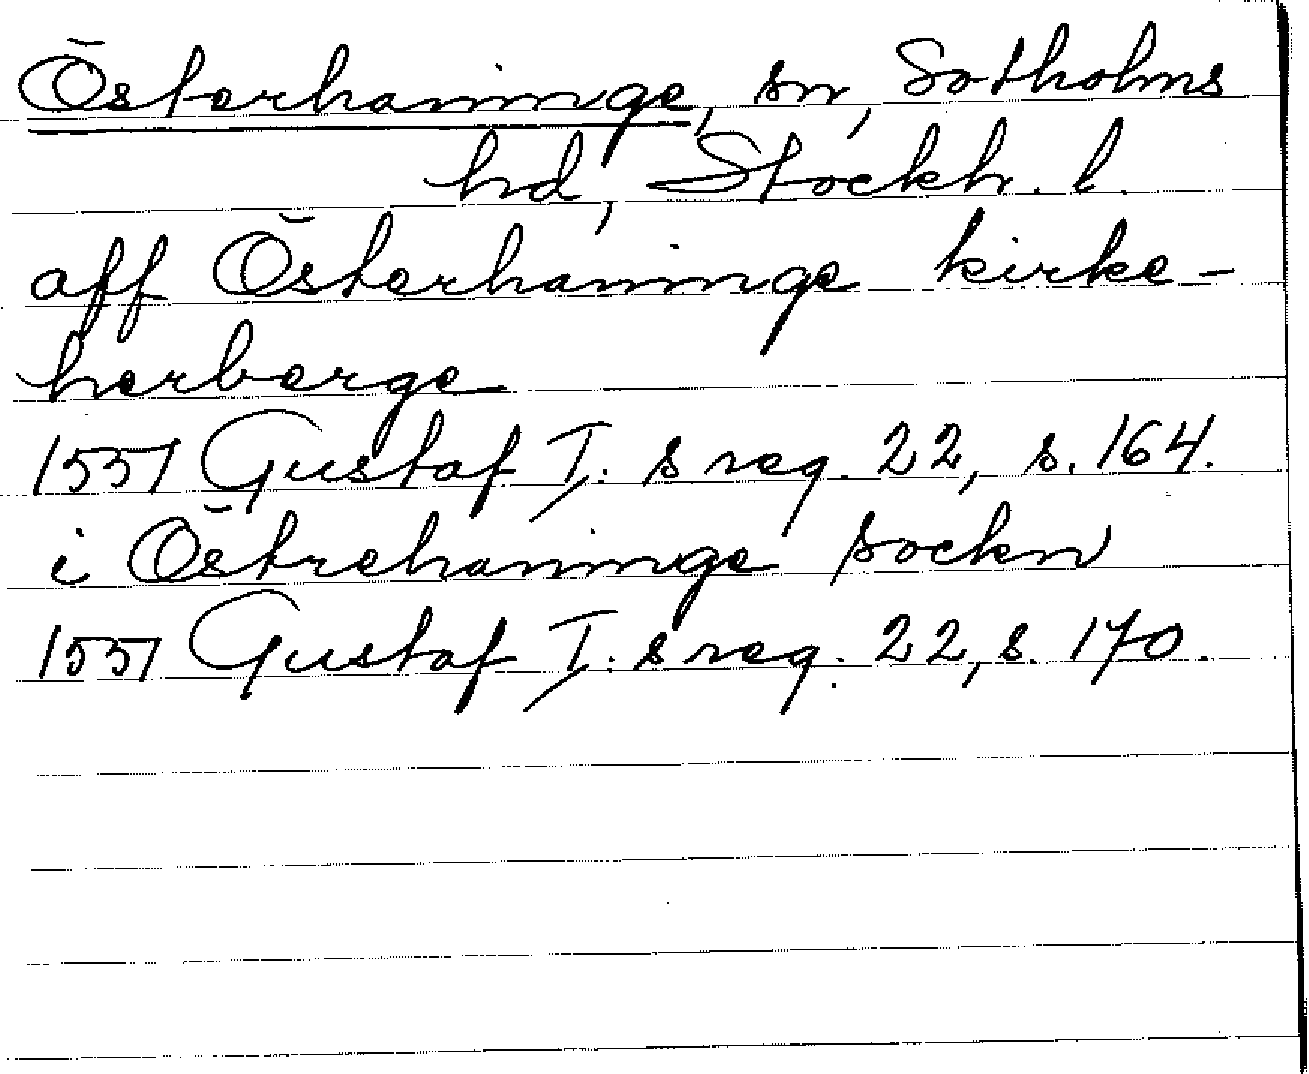 Österhaninge, sn, Sotholms
hd, Stockh. l.
aff Österhaninge kirke-
herberge
1551 Gustaf I:s reg. 22, s. 164.
i Östrehaninge sockn
1551 Gustaf I:s reg. 22, s. 170.